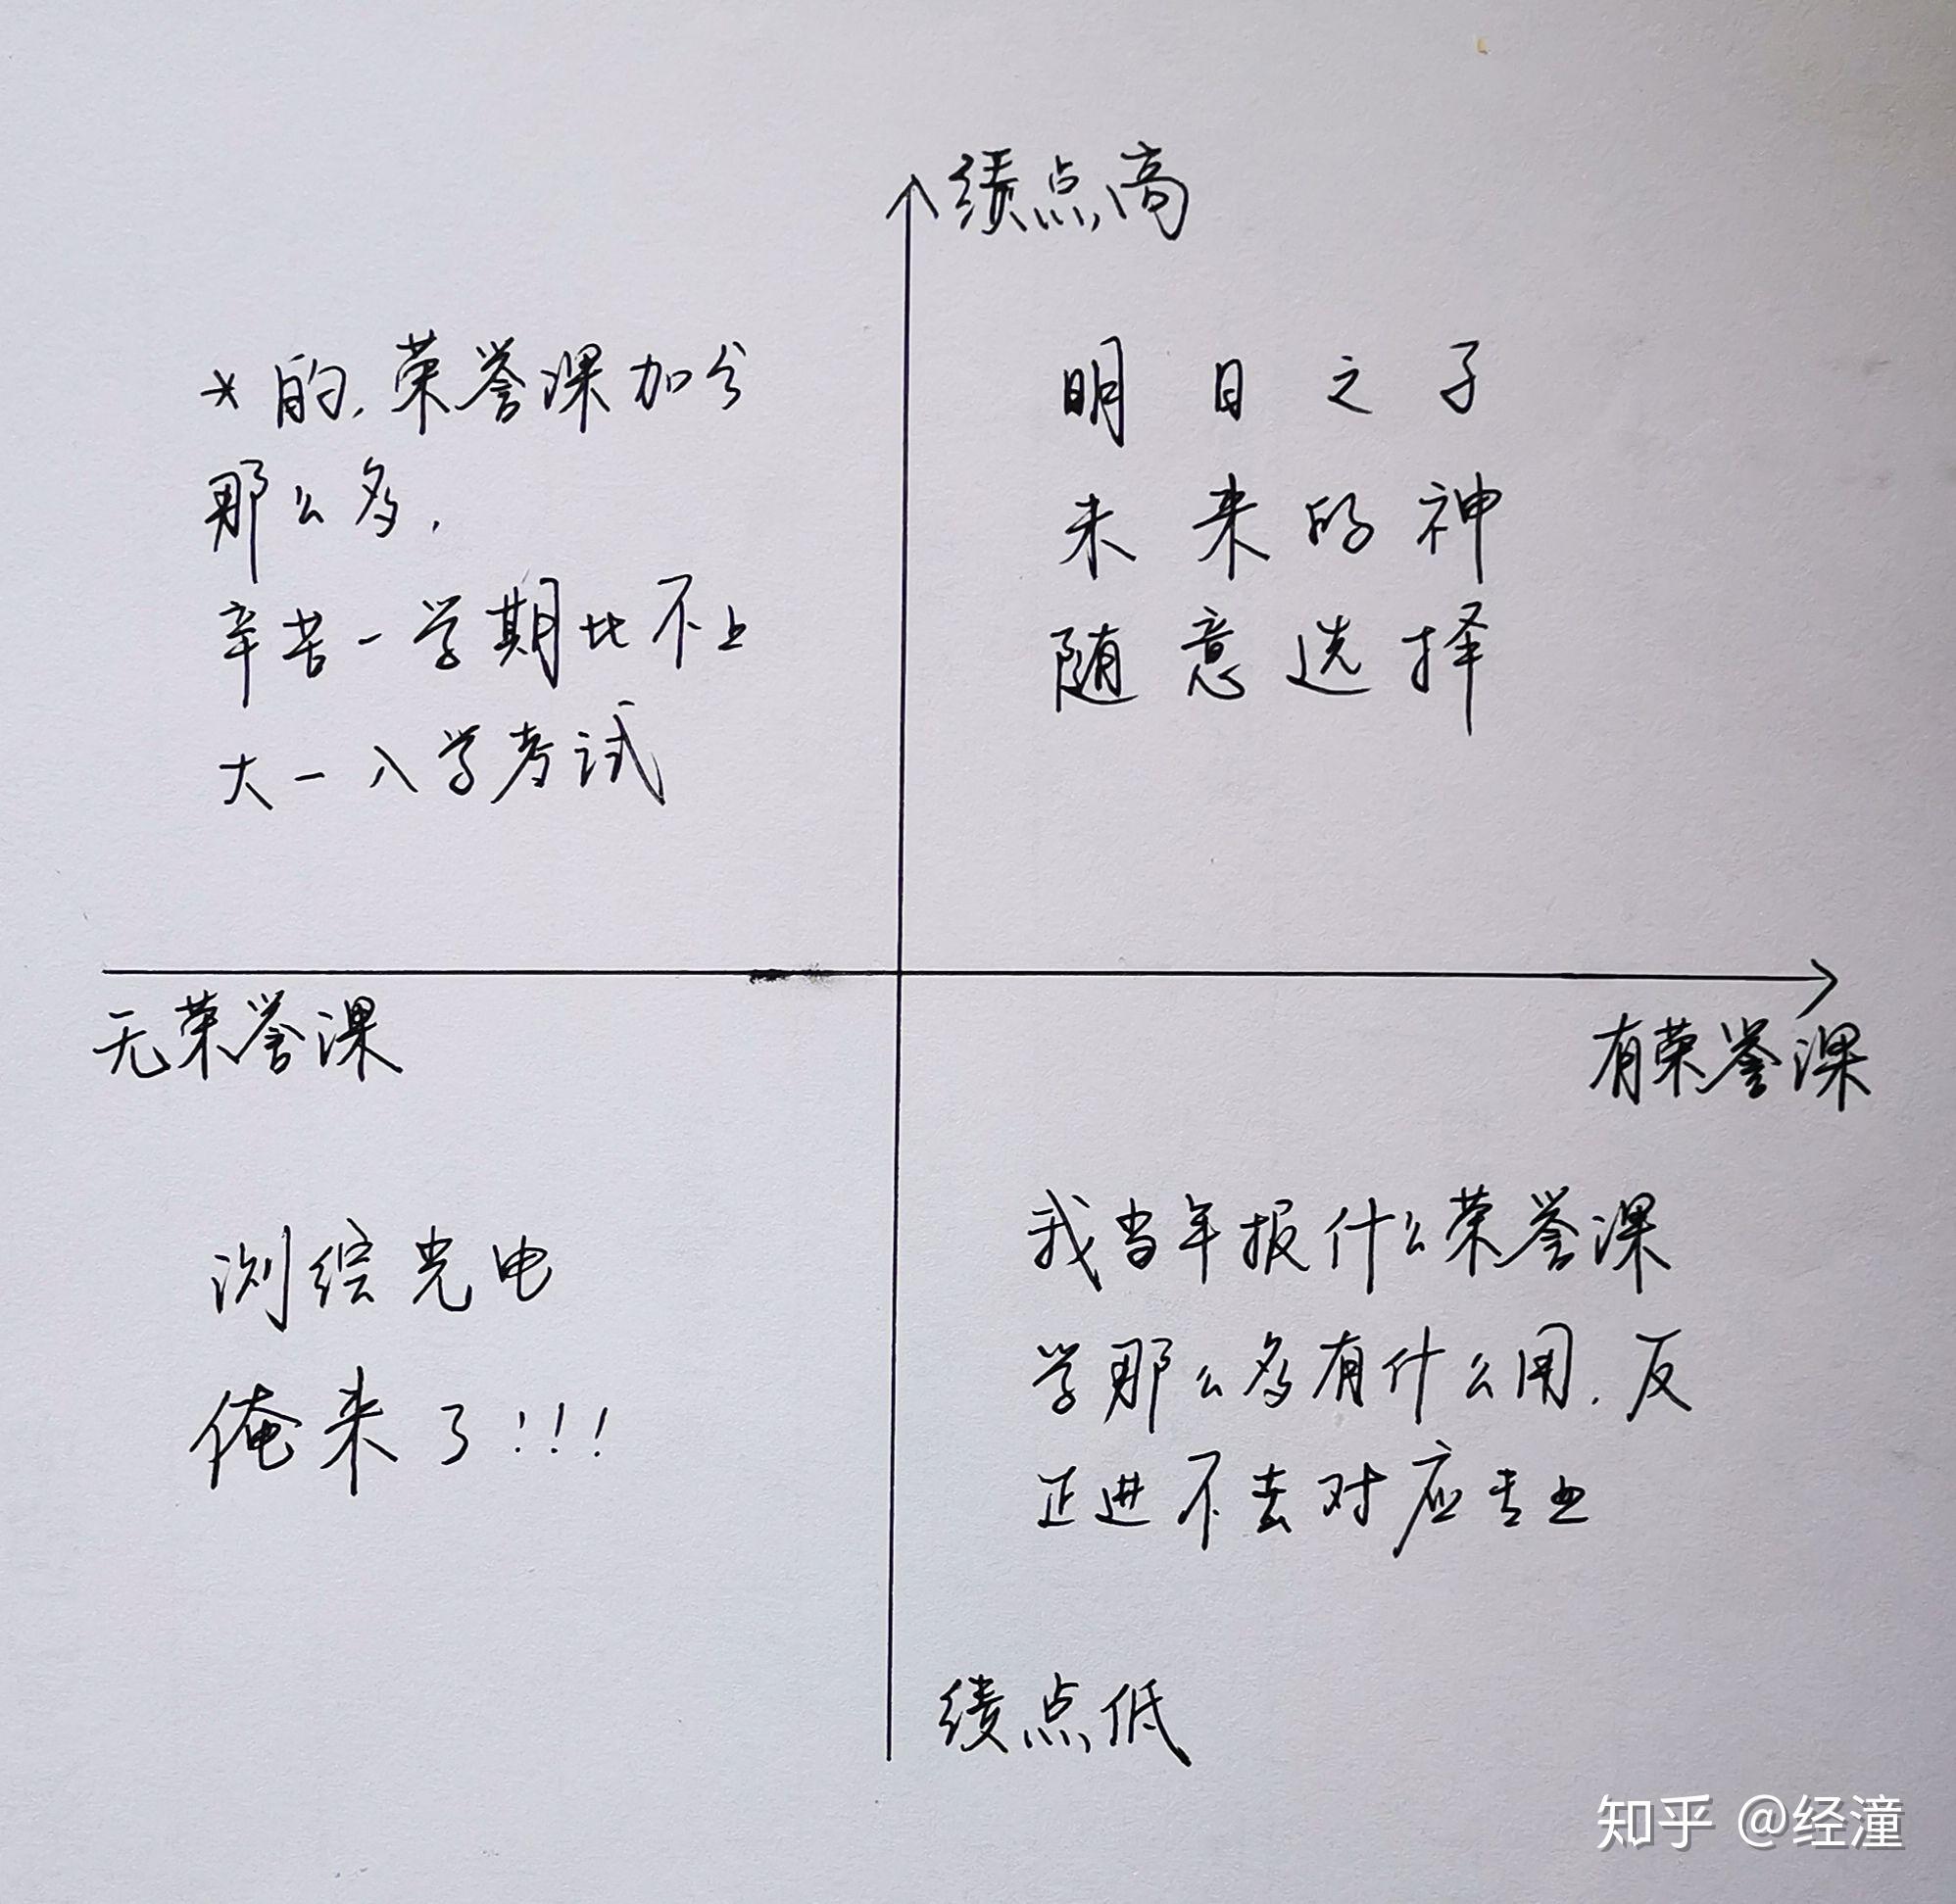 绩点高
*的,荣誉课加分
那么多,
辛苦一学期比不上
大一入学考试
明日之子
未来的神
随意选择
无荣誉课
有荣誉课
测绘光电
俺来了!!!
我当年报什么荣誉课
学那么多有什么用,反
正进不去对应专业
绩点低
知乎 @经潼